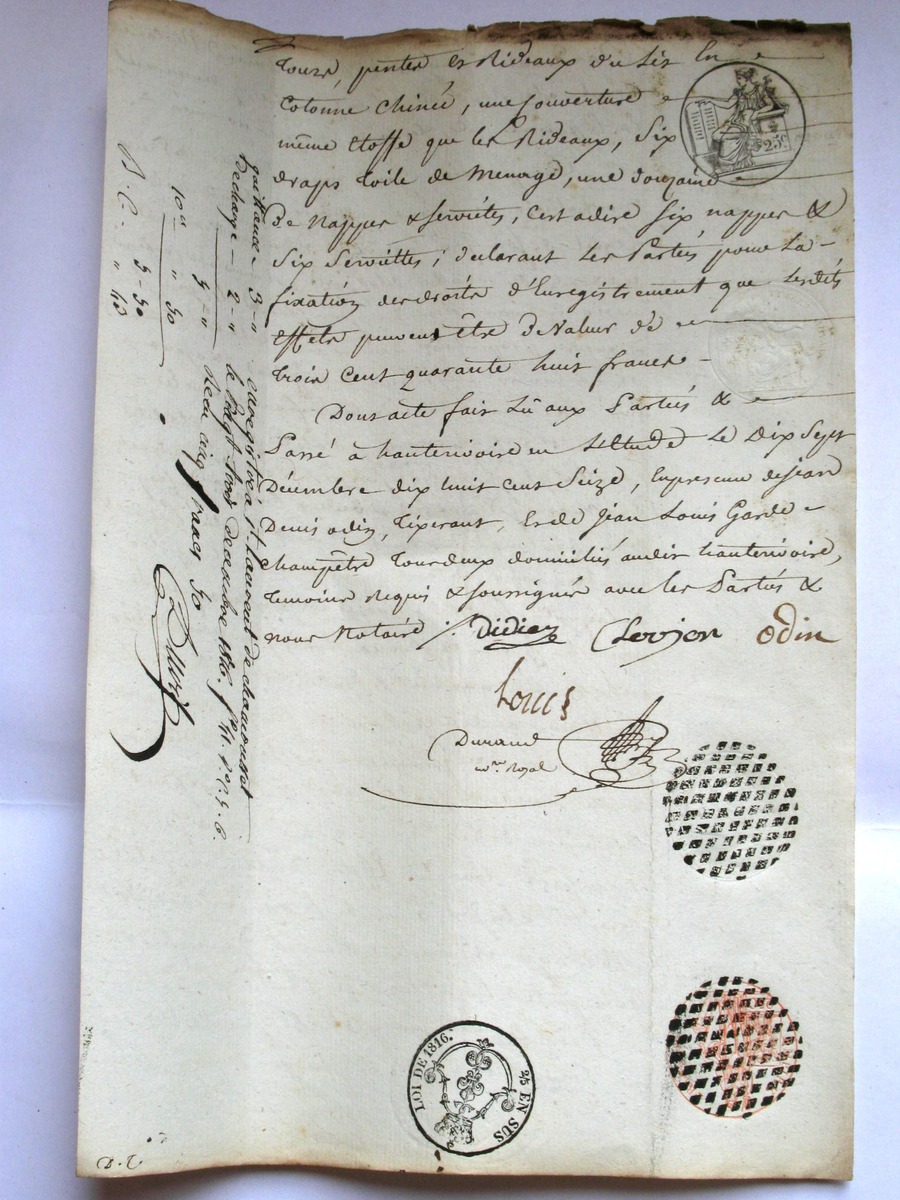 Tours, pentes et Rideaux du Lit En
Cotonne Chinée, une Couverture
même Etoffe que les Rideaux, Six
draps Toile de Menage, une douzaine
De Nappes & serviettes, C'est adire Six nappes &
Six Serviettes; declarant Les Parties, pour La
fixation des droits d'Enregistrement que Lesdits
Effets peuvent être De Valeur de
Trois Cent quarante huit francs
Dont acte fait Lû aux Parties &
Passé à hauterivoire en L'Etude Le Dix Sept
Décembre dix huit cent Seize, En presence de Jean
Denis odin, Tixerant, et de Jean Louis Garde
Champêtre Tous deux domiciliés audit hauterivoire,
Temoins Requis & soussignés avec les Parties &
nous Notaire
Didier Clevjon Odin
Louis
Durand
no.re Royal
25.c
quittance 3 - "
Decharge 2 - "
5 - "
10.e " 50
5 - 50
B. C. "
Enregistré à St. Laurent de chamousset
le Vingt trois decembre 1816. f.o
Recu cinq francs 50
LOI DE 1816.
25 EN SUS
D. T.